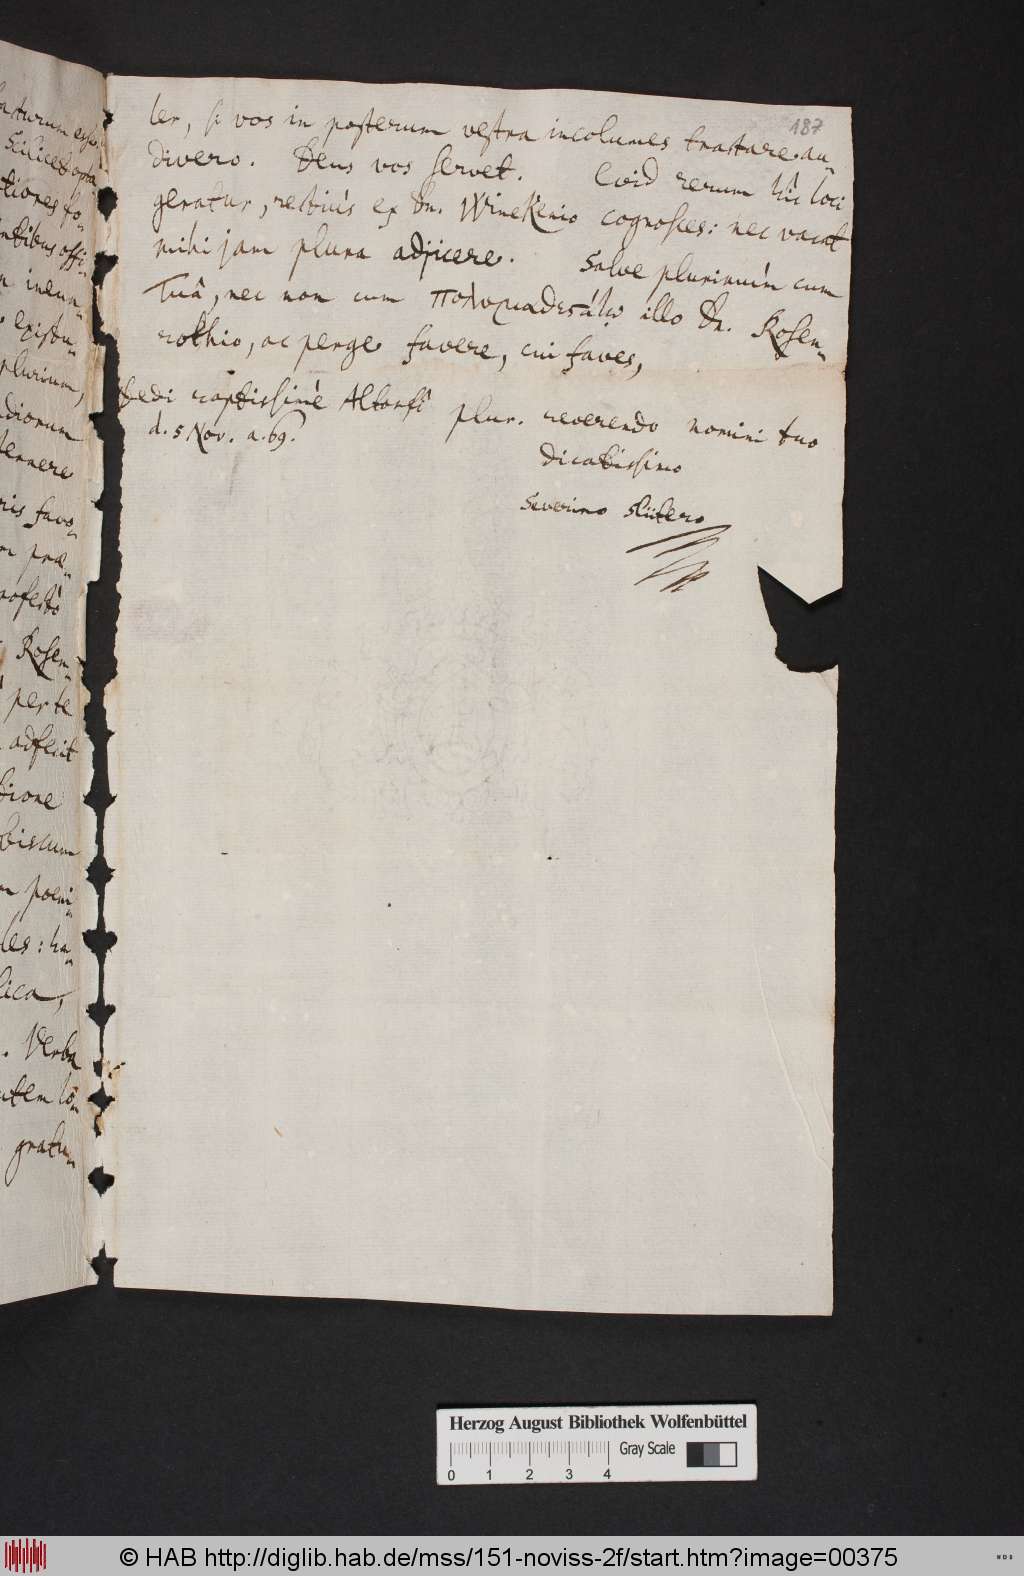 187
ler, si vos in posterum vestra incolumes tractare au-
divero. Deus vos servet. Qvid rerum hîc loci
geratur, rectiùs ex Dn. Winekenio cognosces: nec vacat
mihi jam plura adjicere. Salve plurimùm cum
Tuâ, nec non cum illo Dn. Rosen-
rothio, ac perge favere, cui faves,
raptissimè Altorfî
d. 5. Nov. a. 69.
plur. reverendo nomini tuo
dicatissimo
Severino Slütero
facturum esse,
Scilicet opta-
ctiones fo-
ntibus offi-
n ineun-
existu-
plurium,
diorum
ternere
ris favo-
m præ-
rofectò
Rosen-
per te
adfecit
tione
biscum
m poeni-
les: ha-
lica,
. Verba
utem lo-
gratu-
Herzog August Bibliothek Wolfenbüttel
Gray Scale
0 1 2 3 4
© HAB http://diglib.hab.de/mss/151-noviss-2f/start.htm?image=00375